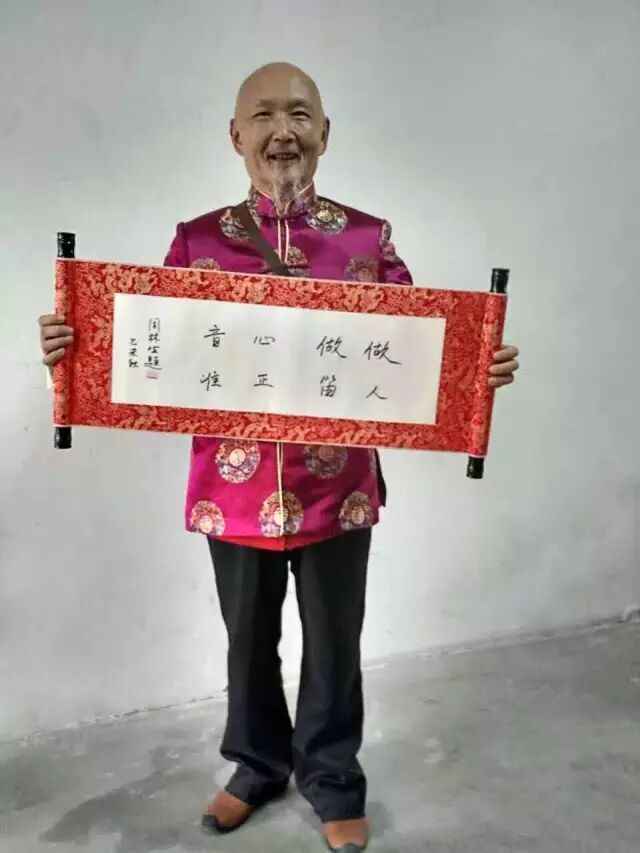 做人
做笛
心正
音准
周林生題
乙未秋